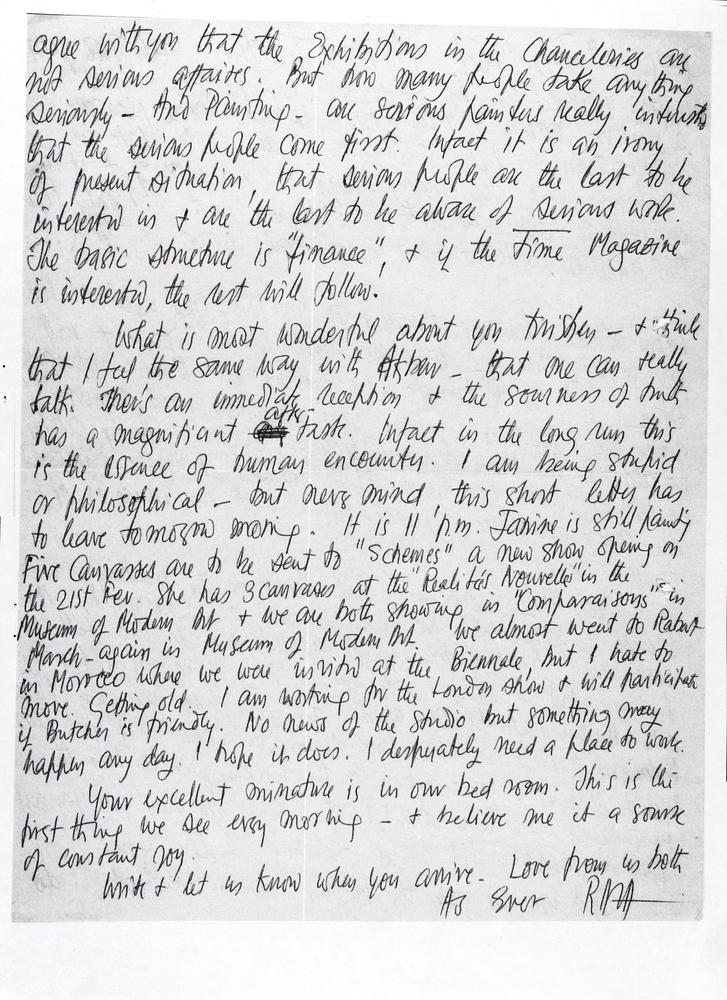 agree with you that the Exhibitions in the Chanceleries are
not serious affaires. But how many people take anything
seriously - And Painting - are serious painters really interested
that the serious people come first. Infact it is an irony
of present situation, that serious people are the last to be
interested in & are the last to be aware of serious work.
The basic structure is "finance", & if the Time Magazine
is interested, the rest will follow.
What is most wonderful about you Krishen - & I think
that I feel the same way with Akbar - that one can really
talk. There's an immediate reception & the sourness of truth
has a magnificant after taste. Infact in the long run this
is the essence of human encounter. I am being stupid
or philosophical - but never mind, this short letter has
to leave tomorrow morning. It is 11 p.m. Janine is still painting
Five Canvasses are to be sent to "Schemes" a new show opening on
the 21st Fev. She has 3 canvases at the "Realités Nouvelle" in the
Museum of Modern Art & we are both showing in "Comparaisons" in
March - again in Museum of Modern Art. We almost went to Rabat
in Morocco where we were invited at the Biennale, but I hate to
move. Getting old. I am working for the London show & will participate
if Butcher is friendly. No news of the studio but something may
happen any day. I hope it does. I desperately need a place to work.
Your excellent minature is in our bed room. This is the
first thing we see every morning - & believe me it a source
of constant joy.
Write & let us know when you arrive - Love from us both
As Ever